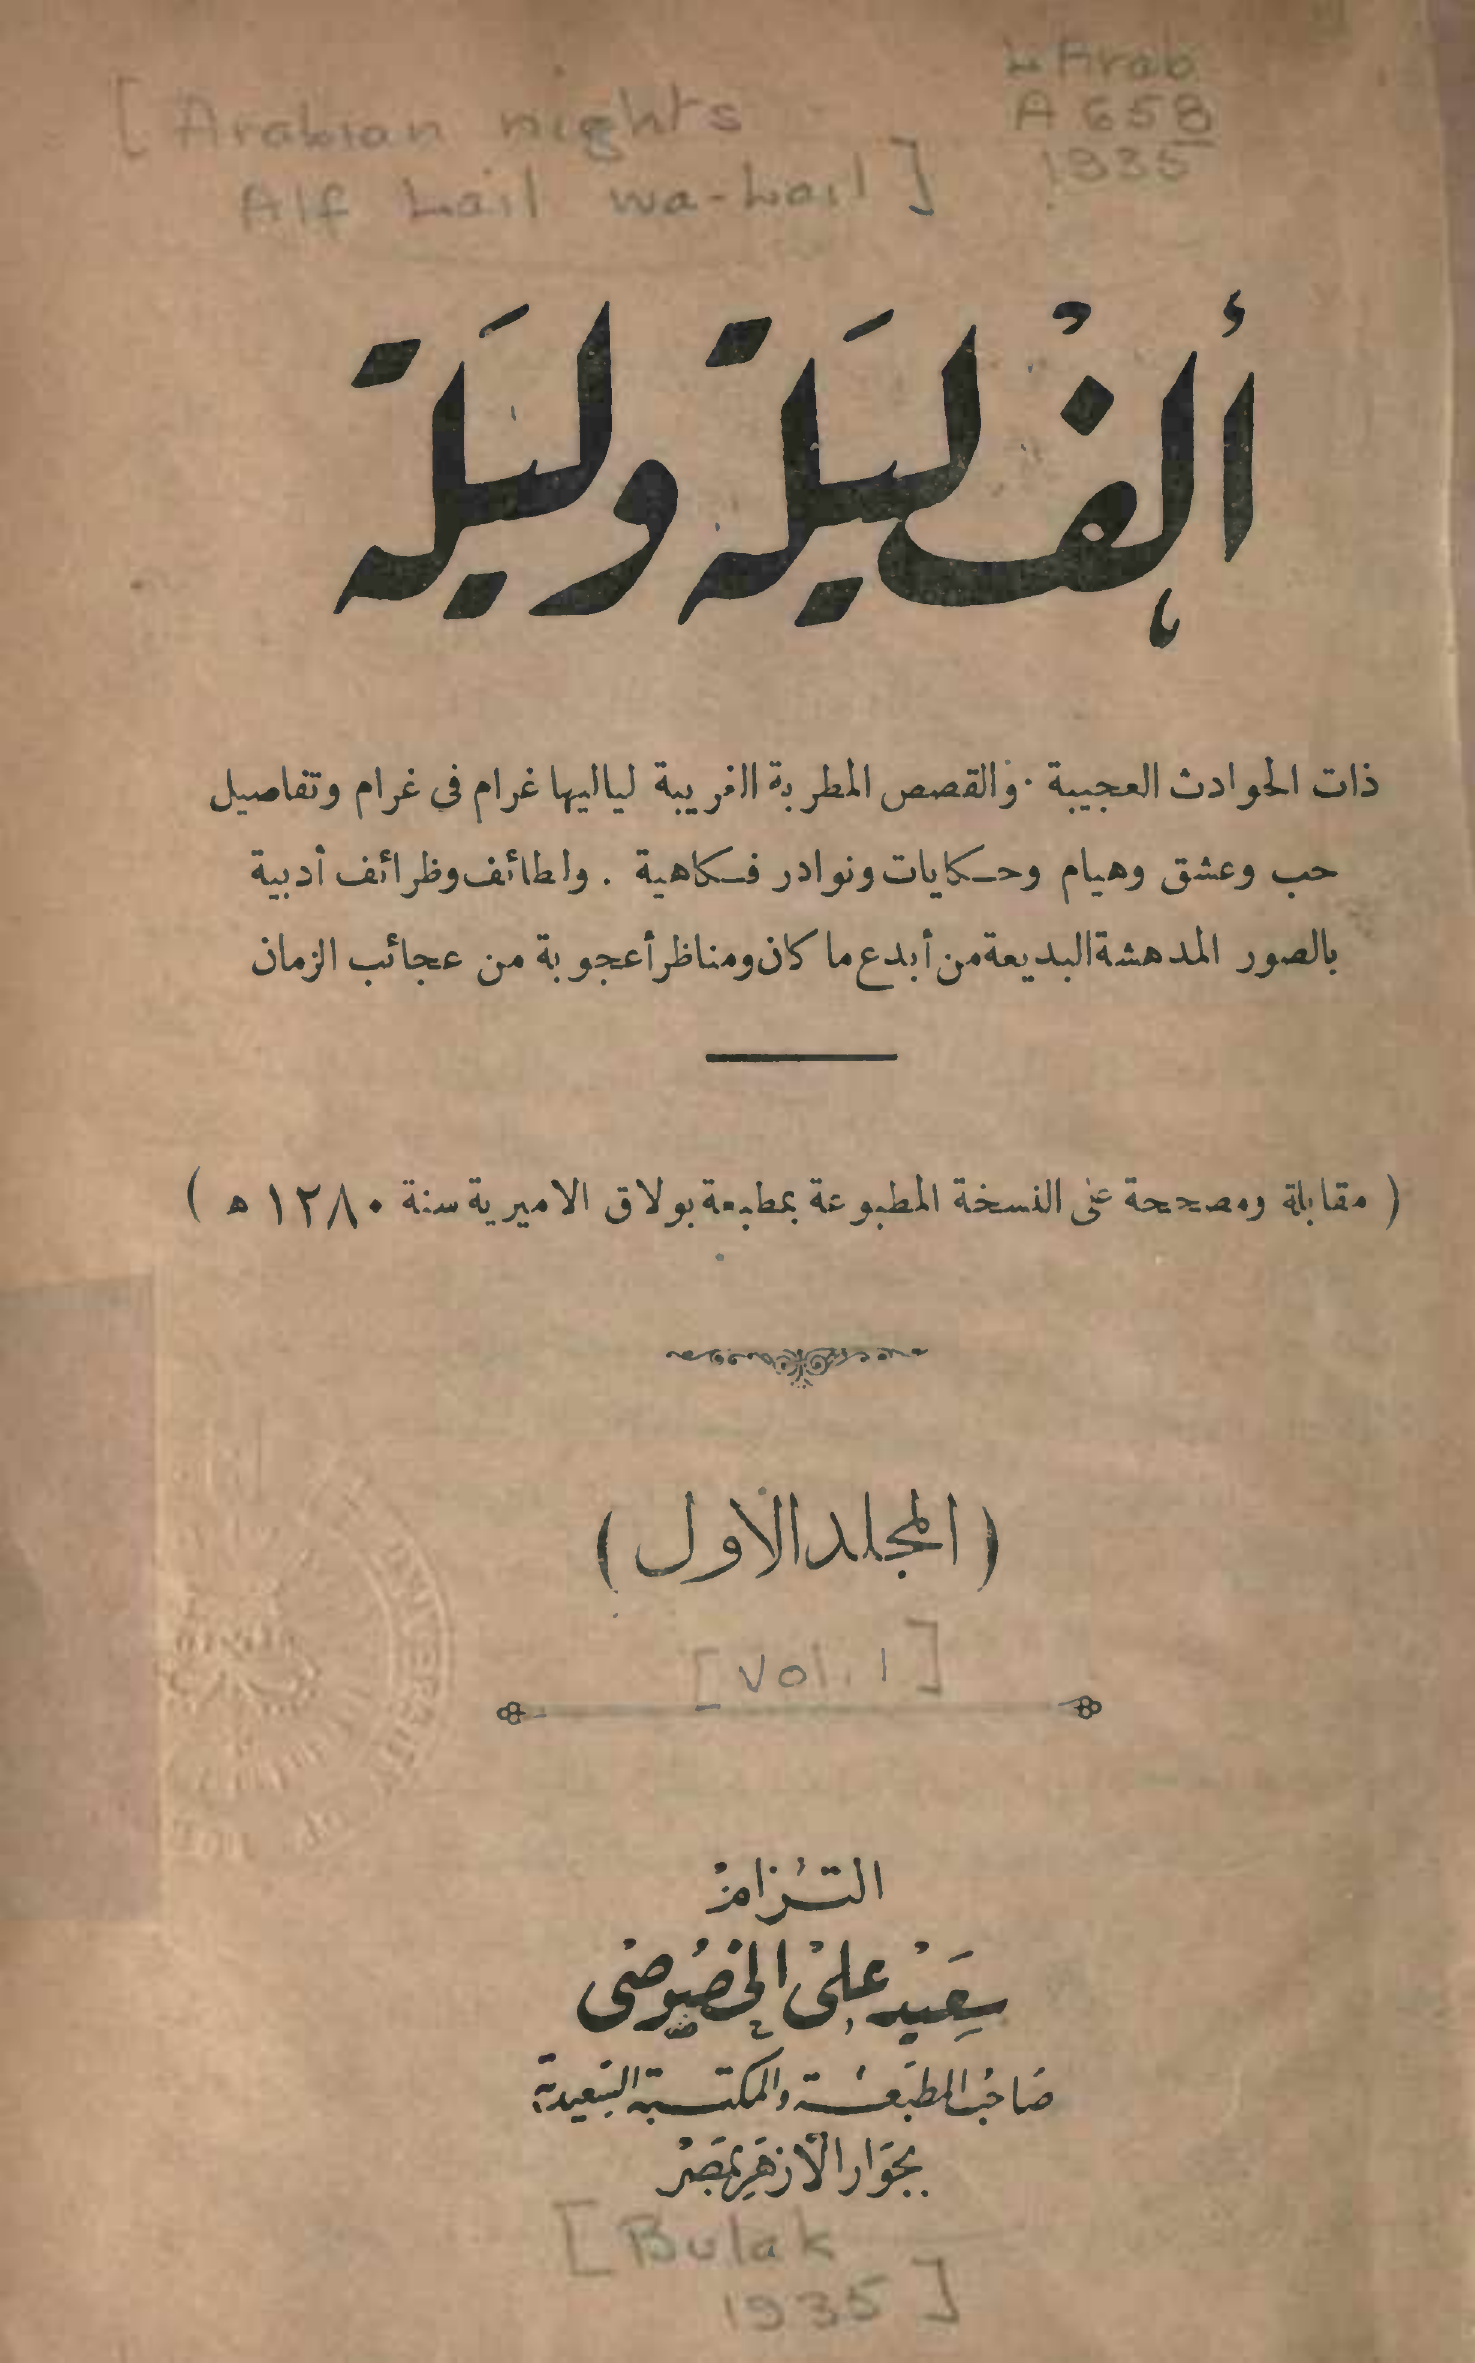 [ Arabian nights
Alf Lail wa-Lail ]
L Arab
A 658
1935
ألف ليلة وليلة
ذات الحوادث العجيبة . والقصص المطربة الغريبة لياليها غرام فى غرام وتفاصيل
حب وعشق وهيام وحكايات ونوادر فكاهية . ولطائف وظرائف أدبية
بالصور المدهشة البديعة من أبدع ما كان ومناظر أعجوبة من عجائب الزمان
( مقابلة ومصححة على النسخة المطبوعة بمطبعة بولاق الاميرية سنة ١٢٨٠ ه )
( المجلد الاول )
[ Vol. 1 ]
التزام
سعيد على الخصوصى
صاحب المطبعة والمكتبة السعيدية
بجوار الأزهر بمصر
[ Bulak
1935 ]